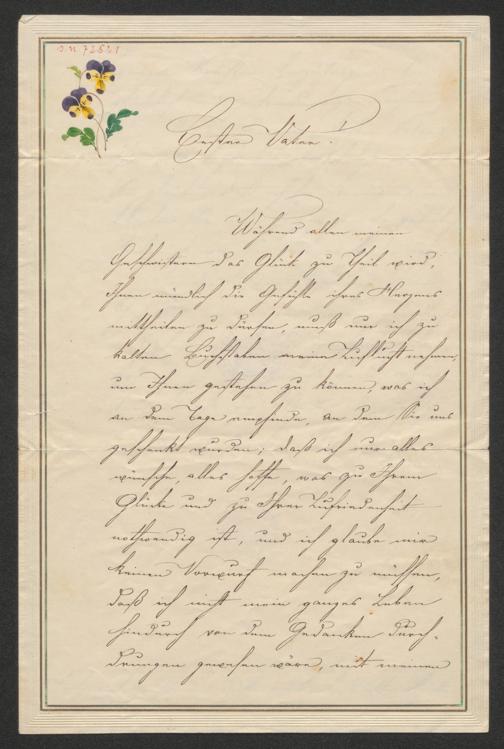 I.N. 73621
Bester Vater!
Während allen meinen
Geschwistern das Glück zu Theil wird,
Ihnen mündlich die Gefühle ihres Herzens
mittheilen zu dürfen, muß nur ich zu
kalten Buchstaben meine Zuflucht nehmen,
um Ihnen gestehen zu können, was ich
an dem Tage empfinde, an dem Sie uns
geschenkt wurden; daß ich nur alles
wünsche, alles hoffe, was zu Ihrem
Glücke und zu Ihrer Zufriedenheit
nothwendig ist, und ich glaube mir
keinen Vorwurf machen zu müssen,
daß ich nicht mein ganzes Leben
hindurch von dem Gedanken durch-
drungen gewesen wäre, mit meinem